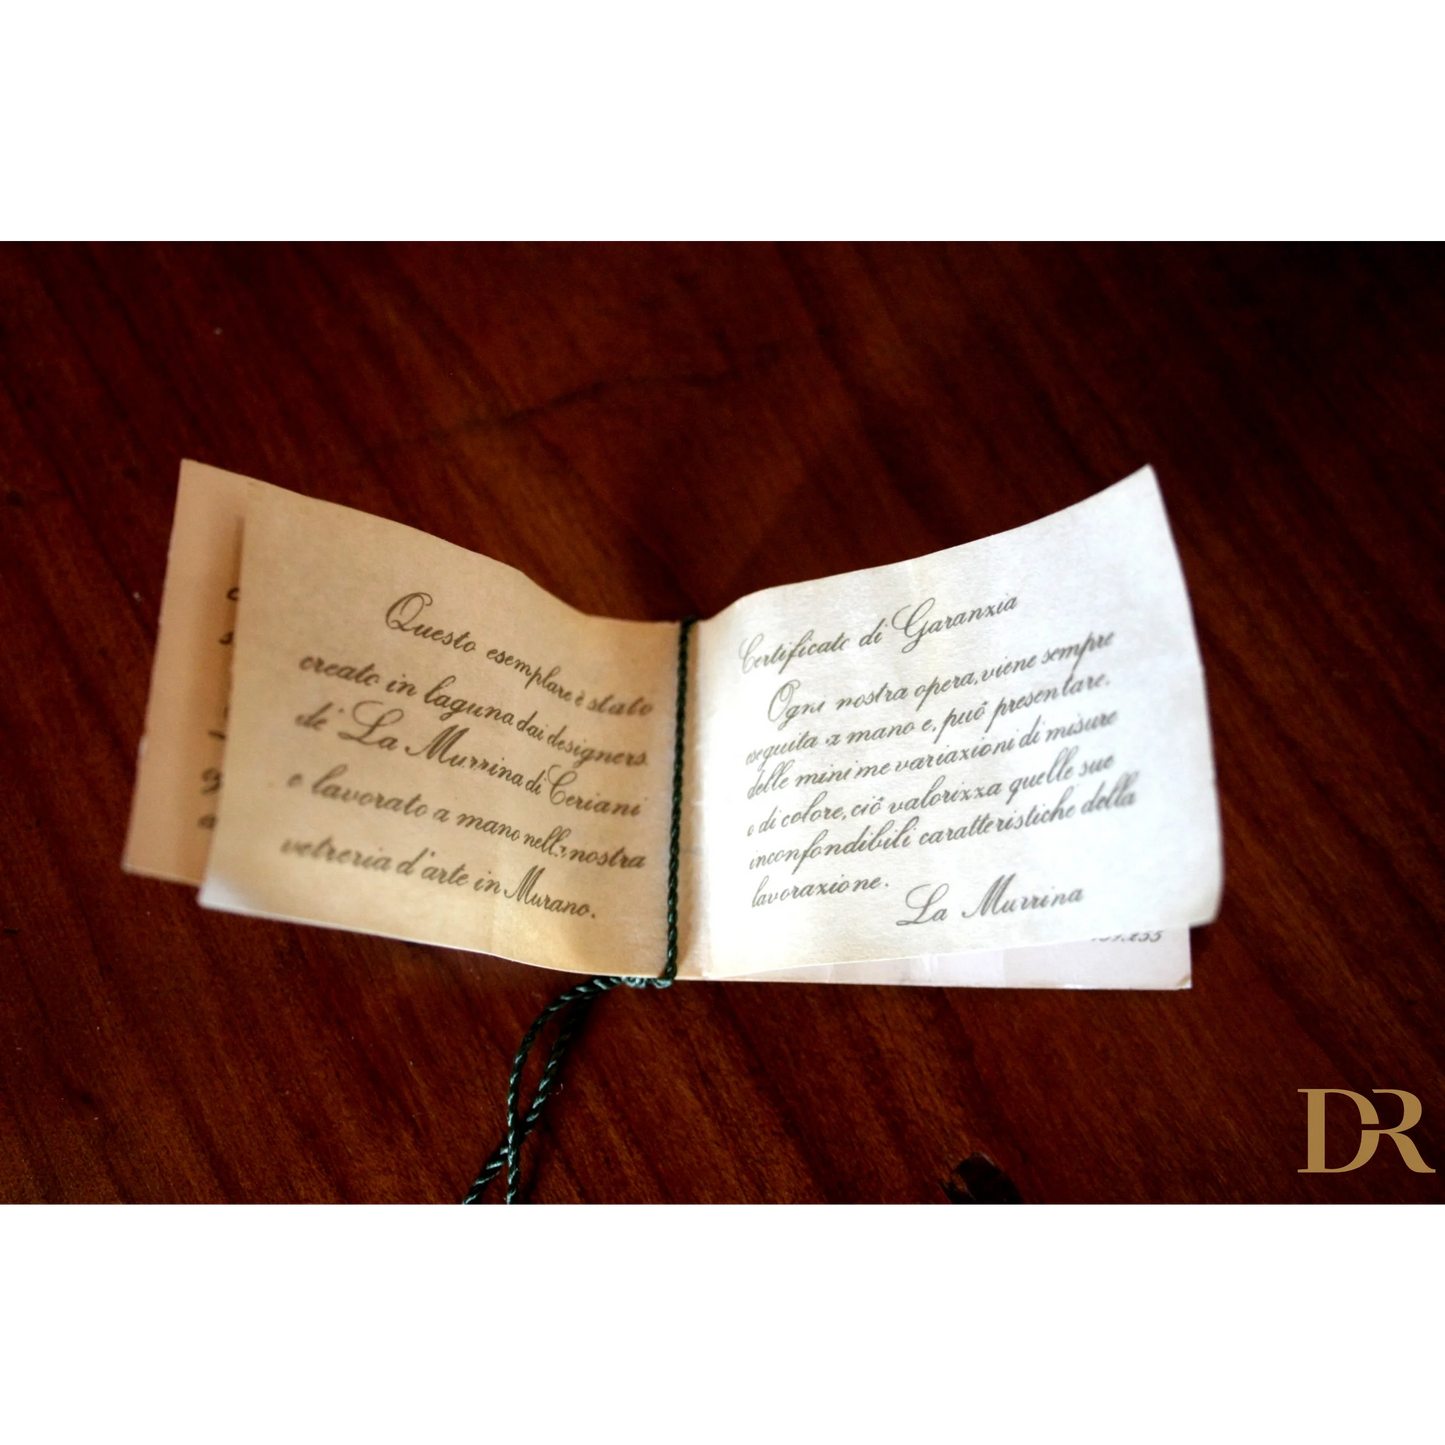 Questo esemplare è stato
creato in laguna dai designers
de' La Murrina di Ceriani
e lavorato a mano nella nostra
vetreria d'arte in Murano.
Certificato di Garanzia
Ogni nostra opera, viene sempre
eseguita a mano e, può presentare,
delle minime variazioni di misure
e di colore, ciò valorizza quelle sue
inconfondibili caratteristiche della
lavorazione.
La Murrina
DR